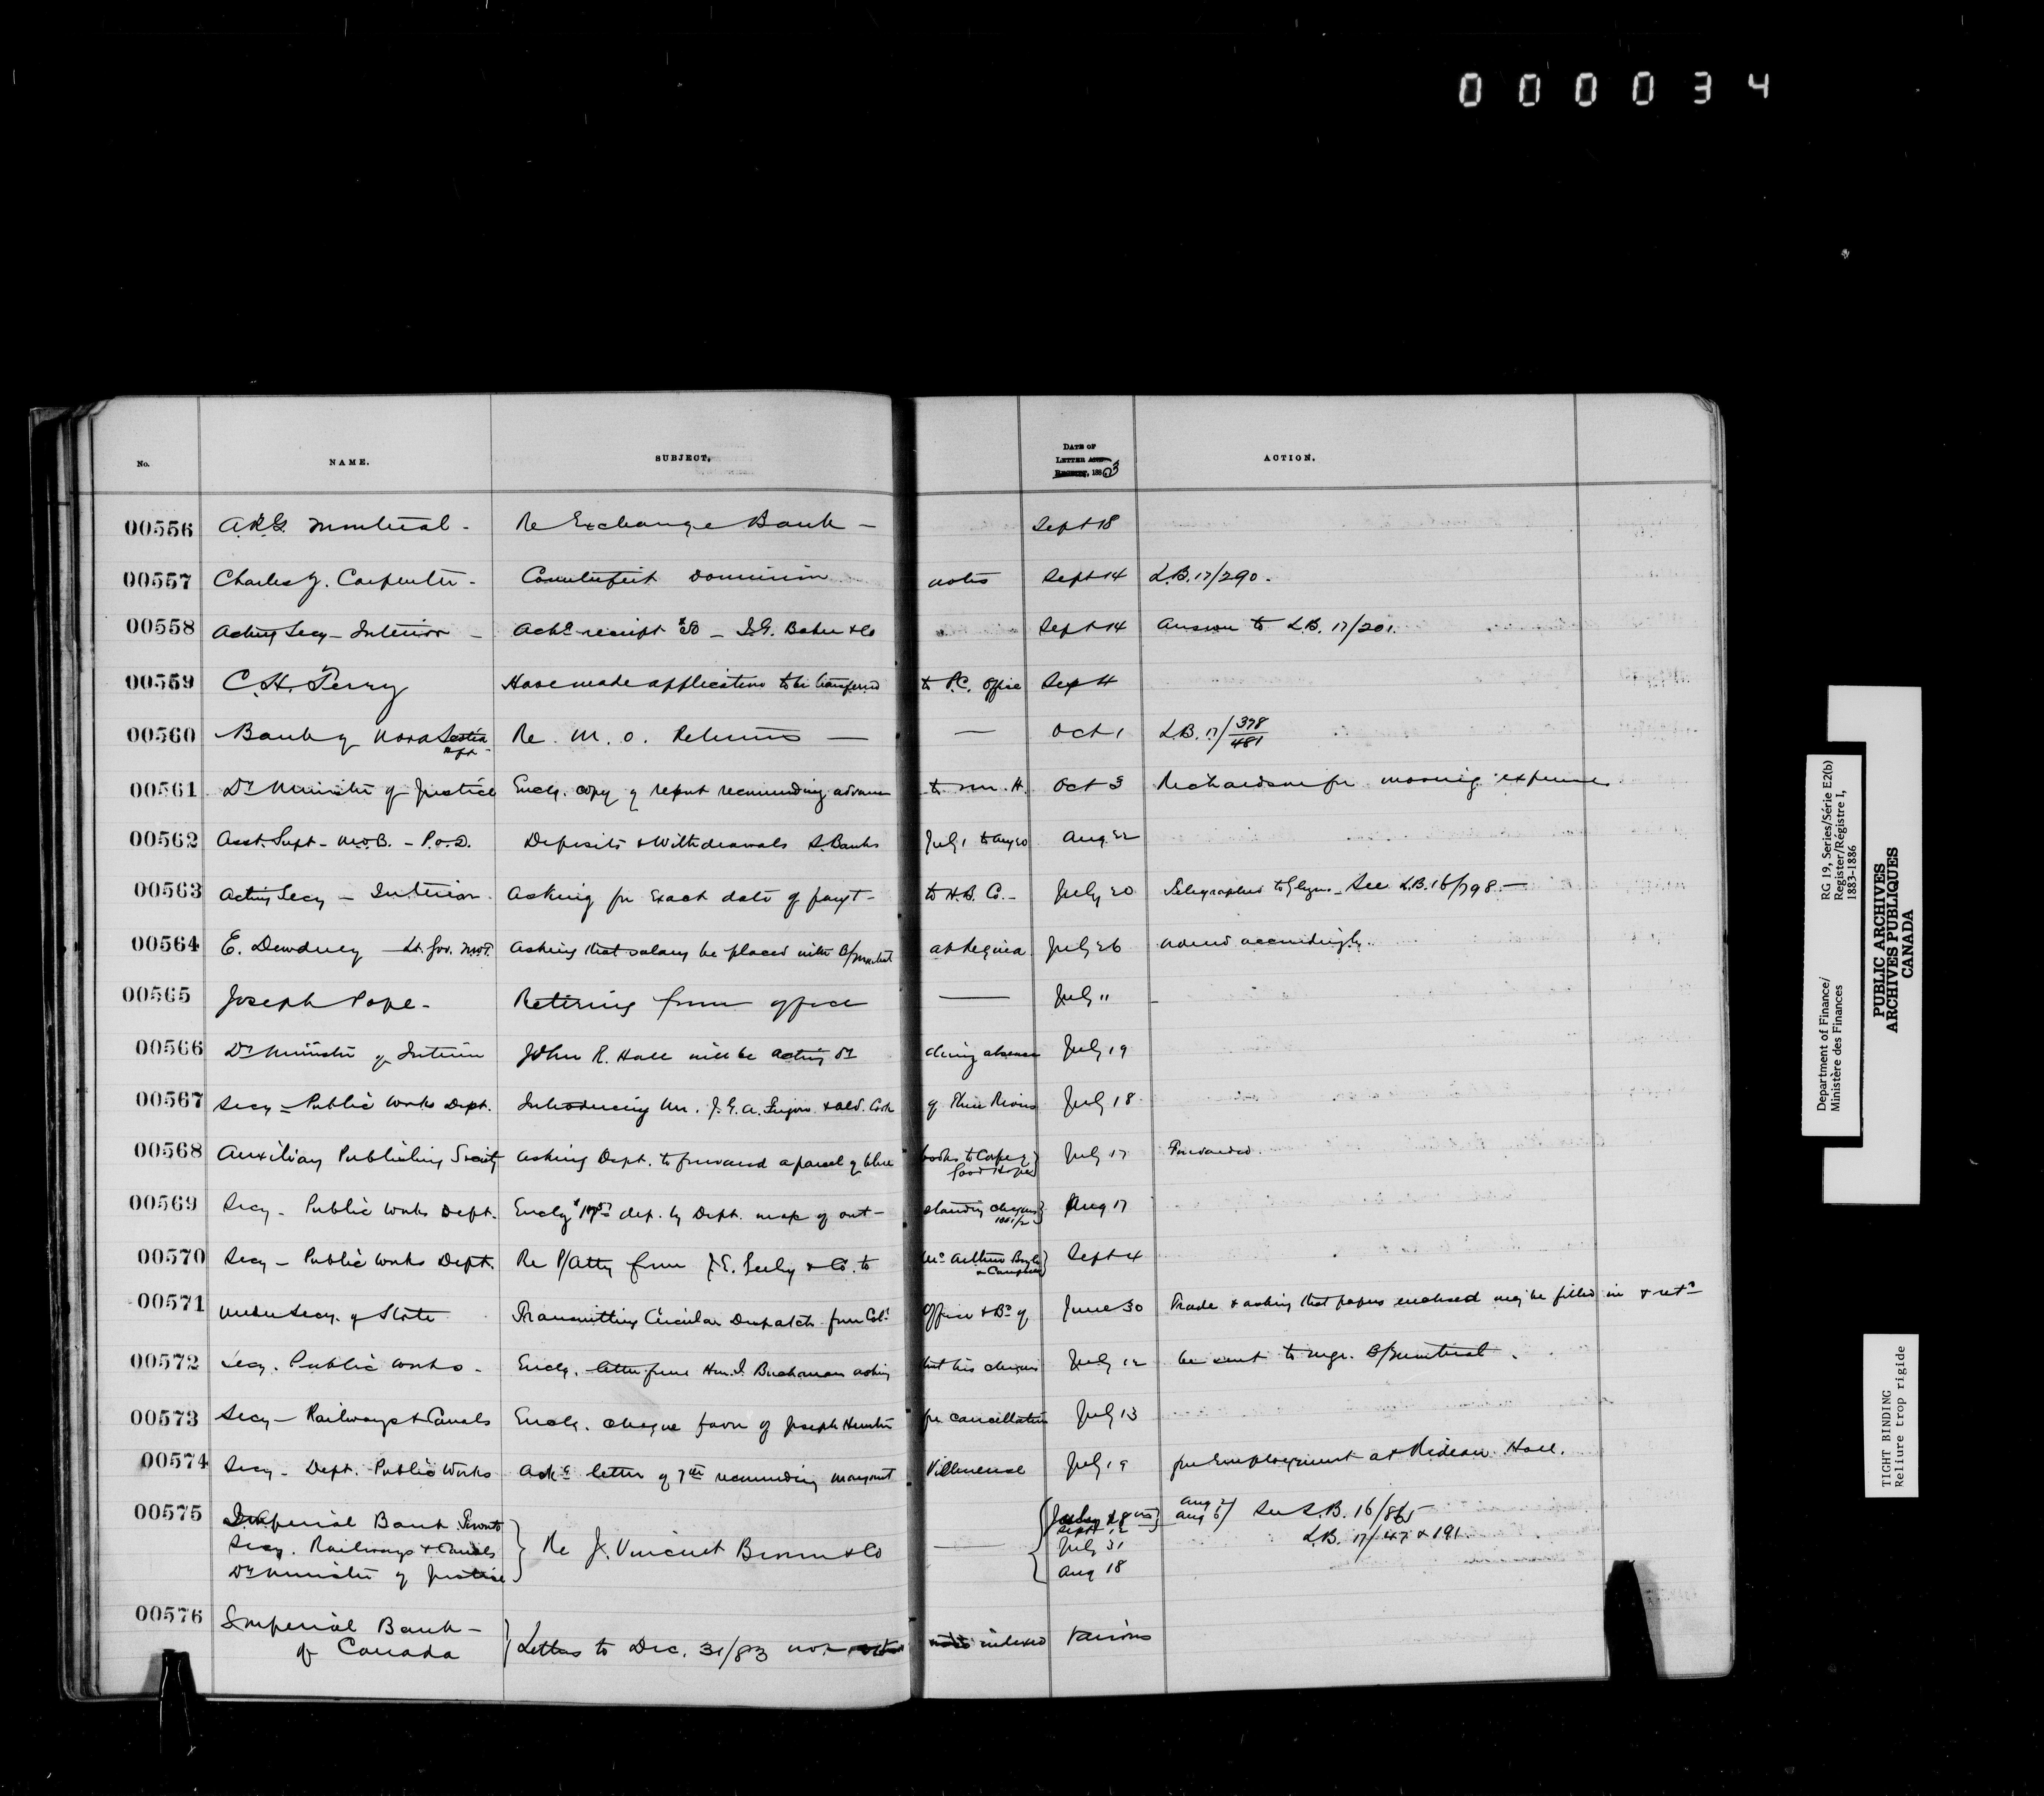 000034
No. NAME. SUBJECT. DATE OF LETTER AND RECEIPT, 1883 ACTION.
00556 A.R.G. Montreal - Re Exchange Bank - Sept 18
00557 Charles J. Carpenter - Counterfeit Dominion notes Sept 14 L.B. 17/290.
00558 Acting Secy - Interior - Ackg receipt $50 - I.G. Baker & Co Sept 14 Answer to L.B. 17/201.
00559 C.H. Perry Have made application to be transferred to P.C. Office Sep 4
00560 Bank of Nova Scotia Agt. Re M.O. Returns - - Oct 1 L.B. 17/ 378 481
00561 Dy Minister of Justice Encg. copy of report recommending advance to Mr. H. Oct 3 Richardson for moving expenses
00562 Asst. Supt - M.O.B. - P.O.D. Deposits & Withdrawals S. Banks July 1 to Aug 20 Aug 22
00563 Acting Secy - Interior. Asking for exact date of payt - to H.B. Co. - July 20 Telegraphed to Glyns - See L.B. 16/798 -
00564 E. Dewdney - Lt. Gov. N.W.T. Asking that salary be placed with B/Montreal at Regina July 26 accordingly.
00565 Joseph Pope - Retiring from office - July 11
00566 Dy Minister of Interior John R. Hall will be acting Dy during absence July 19
00567 Secy - Public Works Dept. Introducing Mr. J.E.A. & Ald. of Three Rivers July 18
00568 Auxiliary Publishing Society Asking Dept. to forward a parcel of blue books to Cape of Good Hope } July 17 Forwarded.
00569 Secy - Public Works Dept. Encg dep. by Dept. of out- standing cheques 1881/2 } Aug 17
00570 Secy - Public Works Dept. Re P/Atty from & Co. to McArthur Boyle & Campbell } Sept 4
00571 Under Secy. of State Transmitting Circular Despatch from Col. Office & Bd of June 30 Trade & asking that papers enclosed may be filled in & retd
00572 Secy. Public Works - Encg. letter from Hon. I. Buchanan asking that his cheques July 12 be sent to mgr. B/Montreal.
00573 Secy - Railways & Canals Encg. cheque favor of Joseph Hunter for cancellation July 13
00574 Secy - Dept. Public Works Ackg letter of 7th recommending Margaret Villeneuve July 19 for employment at Rideau Hall.
00575 Imperial Bank Toronto
Secy. Railways & Canals
Dy Minister of Justice } Re J. Vincent Brown & Co -
Sept 12
July 31
Aug 18
Aug 2/ Aug 6/ See L.B. 16/865
L.B. 17/47 & 191.
00576 Imperial Bank - of Canada } Letters to Dec. 31/83 not indexed Various
PUBLIC ARCHIVES
ARCHIVES PUBLIQUES
CANADA
Department of Finance/
Ministère des Finances
RG 19, Series/Série E2(b)
Register/Régistre I,
1883-1886
TIGHT BINDING
Reliure trop rigide